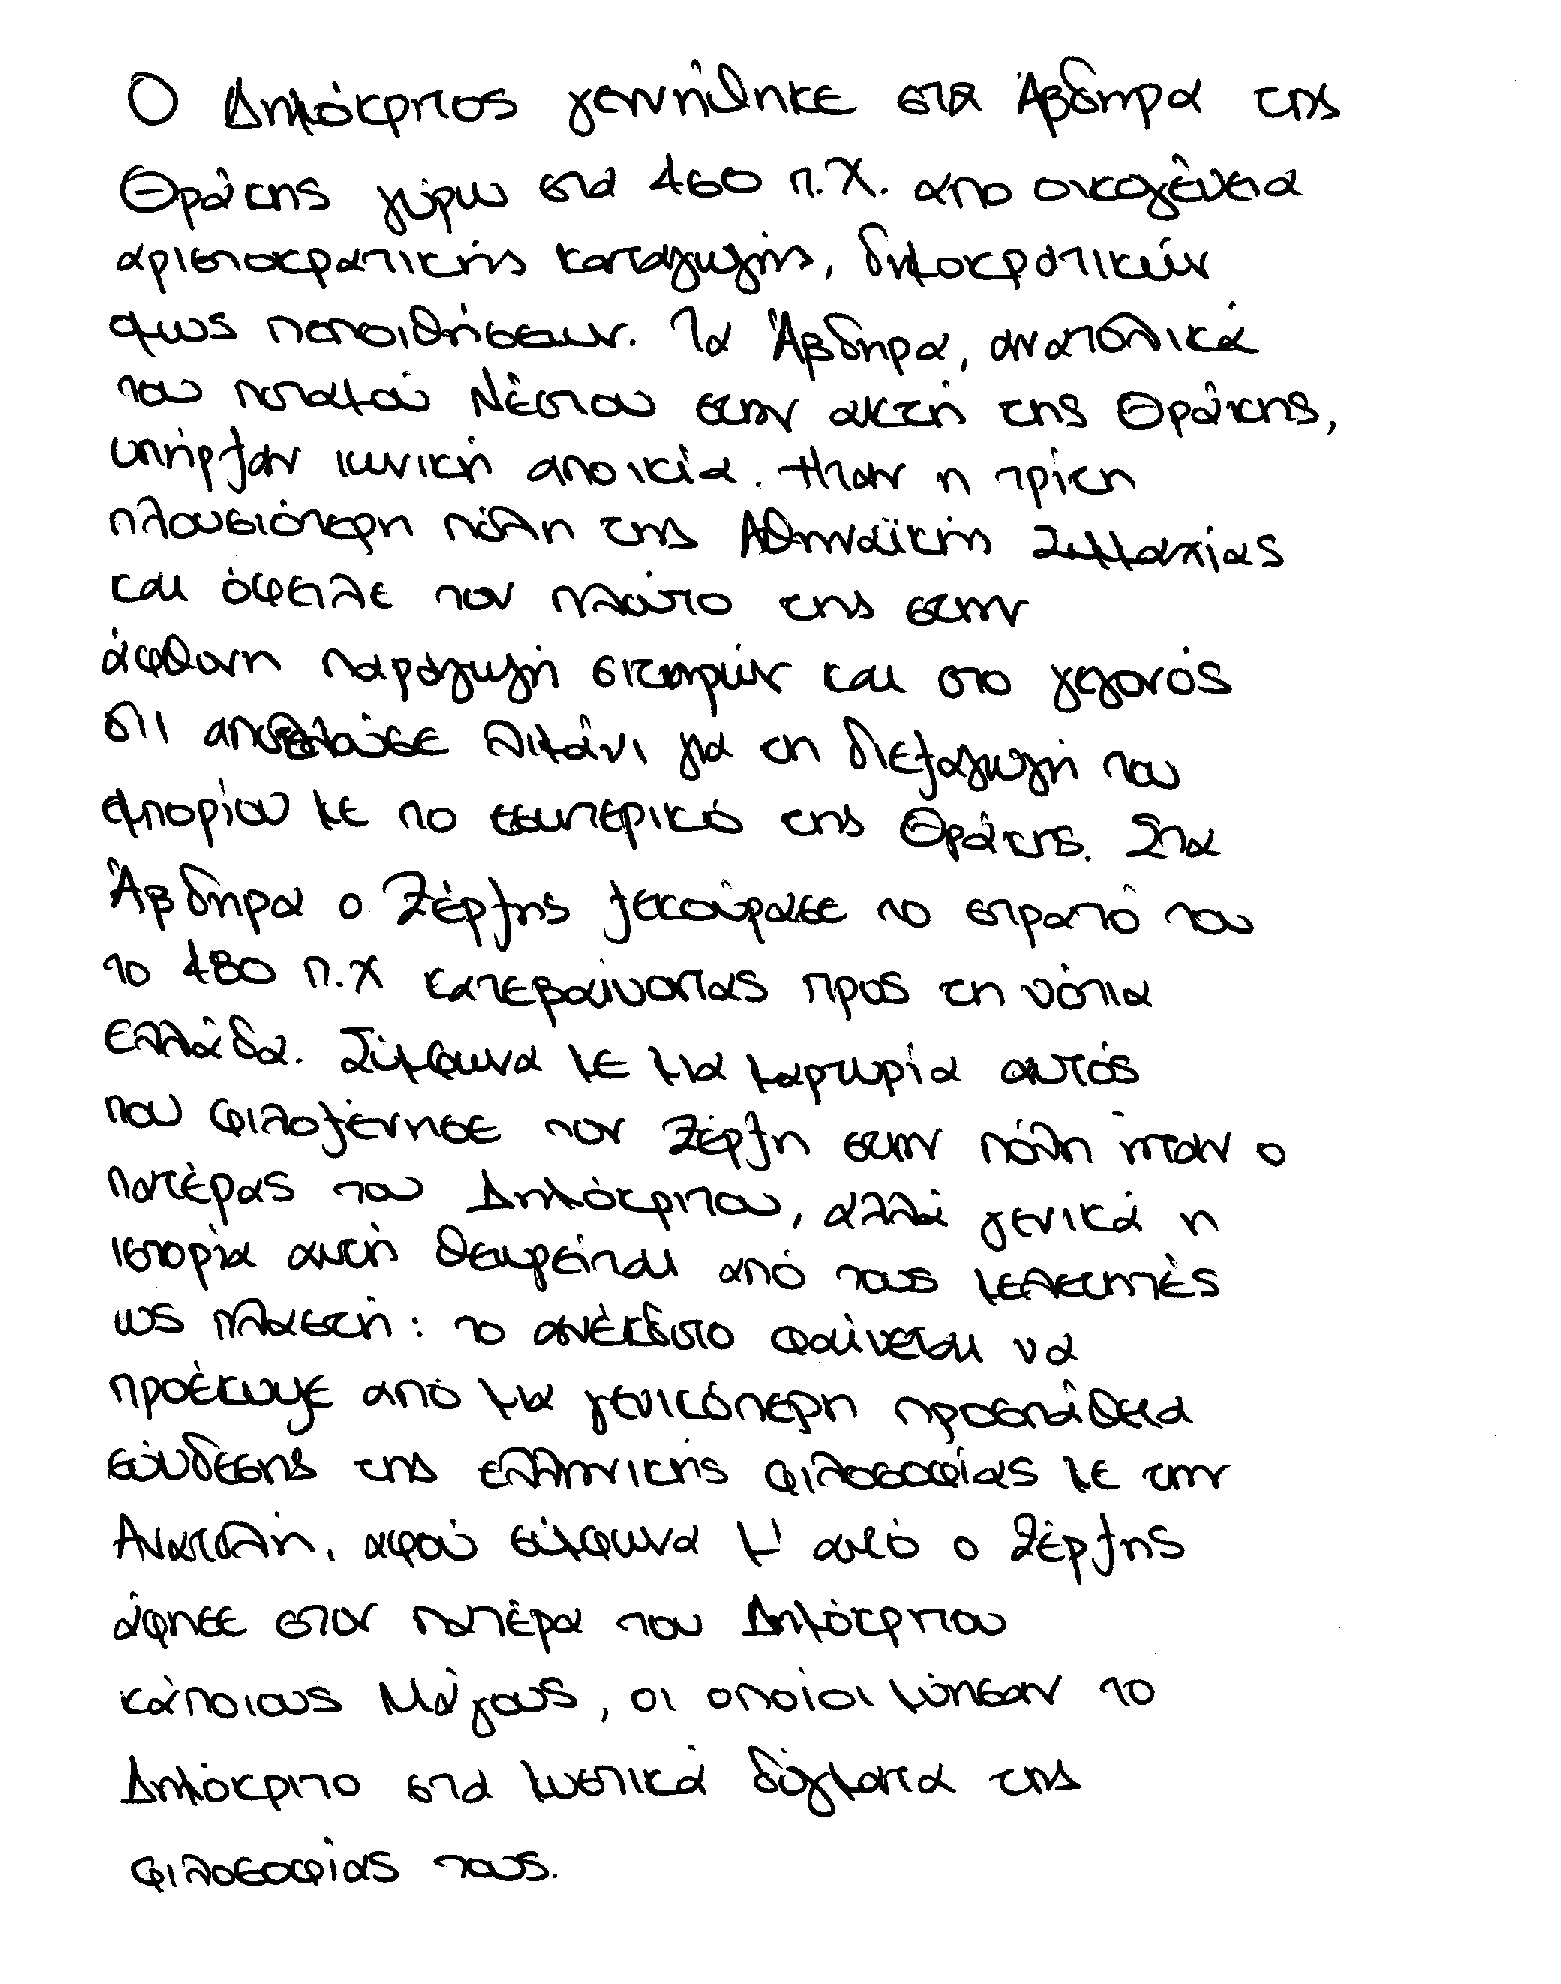 Ο Δημόκριτος γεννήθηκε στα Άβδηρα της
Θράκης γύρω στα 460 π.Χ. απο οικογένεια
αριστοκρατικής καταγωγής, δημοκρατικών
όμως πεποιθήσεων. Τα Άβδηρα, ανατολικά
του ποταμού Νέστου στην ακτή της Θράκης,
υπήρξαν ιωνική αποικία. Ήταν η τρίτη
πλουσιότερη πόλη της Αθηναϊκής Συμμαχίας
και όφειλε τον πλούτο της στην
άφθονη παραγωγή σιτηρών και στο γεγονός
ότι αποτελούσε λιμάνι για τη διεξαγωγή του
εμπορίου με το εσωτερικό της Θράκης. Στα
Άβδηρα ο Ξέρξης ξεκούρασε το στρατό του
το 480 π.Χ κατεβαίνοντας προς τη νότια
Ελλάδα. Σύμφωνα με μια μαρτυρία αυτός
που φιλοξένησε τον Ξέρξη στην πόλη ήταν ο
πατέρας του Δημόκριτου, αλλά γενικά η
ιστορία αυτή θεωρείται από τους μελετητές
ως πλαστή: το ανέκδοτο φαίνεται να
προέκυψε από μια γενικότερη προσπάθεια
σύνδεσης της ελληνικής φιλοσοφίας με την
Ανατολή, αφού σύμφωνα μ' αυτό ο Ξέρξης
άφησε στον πατέρα του Δημόκριτου
κάποιους Μάγους, οι οποίοι μύησαν το
Δημόκριτο στα μυστικά δόγματα της
φιλοσοφίας τους.